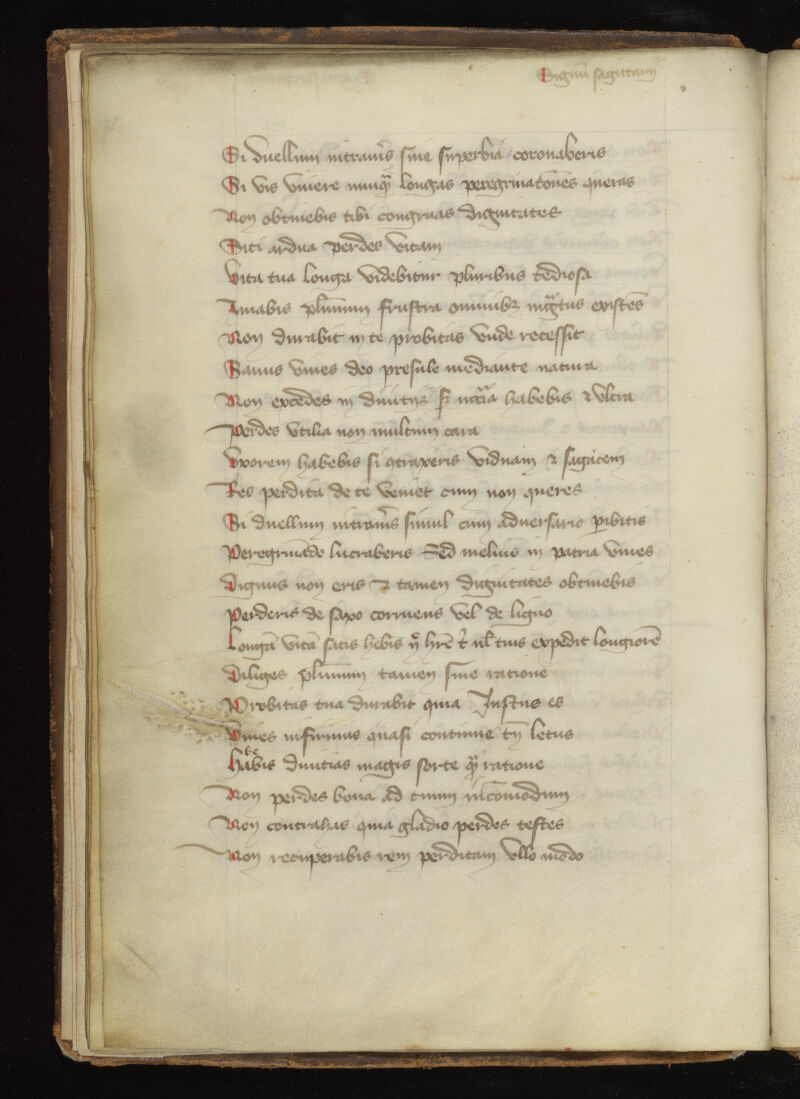 Signū sagittarij
Si duellum intraūis sine superbia coronaberis
Si vis viuere nunq̄ longas peregrinatōnes queras
Non obtinebis tibi congruas dignitates
Siti ardua perdes vitam
Vita tua longa videbitur pluribus tediosa
Amabis plīmum frustra omnibꝫ ingᵃtus existēs
Non durabit in te probitas vnde recessit
Sanus viues deo presule mediante natura
Non excedes in diuitijs sꝫ nccīa habebis ⁊ vltra
Perdes vtilia non multum cara
Vxorem habebis si ꝯtraxeris viduam ⁊ sagacem
Res perdita de te veniet cum non queres
Si duellum intraūis simul cum aduersario ꝑibitis
Peregrinādo lucraberis Sed melius in patria viues
Dignus non eris ⁊ tamen dignitates obtinebis
Perderis de saxo corruens vel de ligno
Longā vitā satis hebis expedit longiorē
Diliges plīmum tamen sine ratione
Probitas tua durabit quia Justus es
Viues infirmus quasi continue tn̄ letus
Habebis diuitias magis sorte q̄ ratione
Non perdes bona ad tuum incōmodum
Non contrahas quia gladio perdes testes
Non recuperabis rem perditam vllo modo